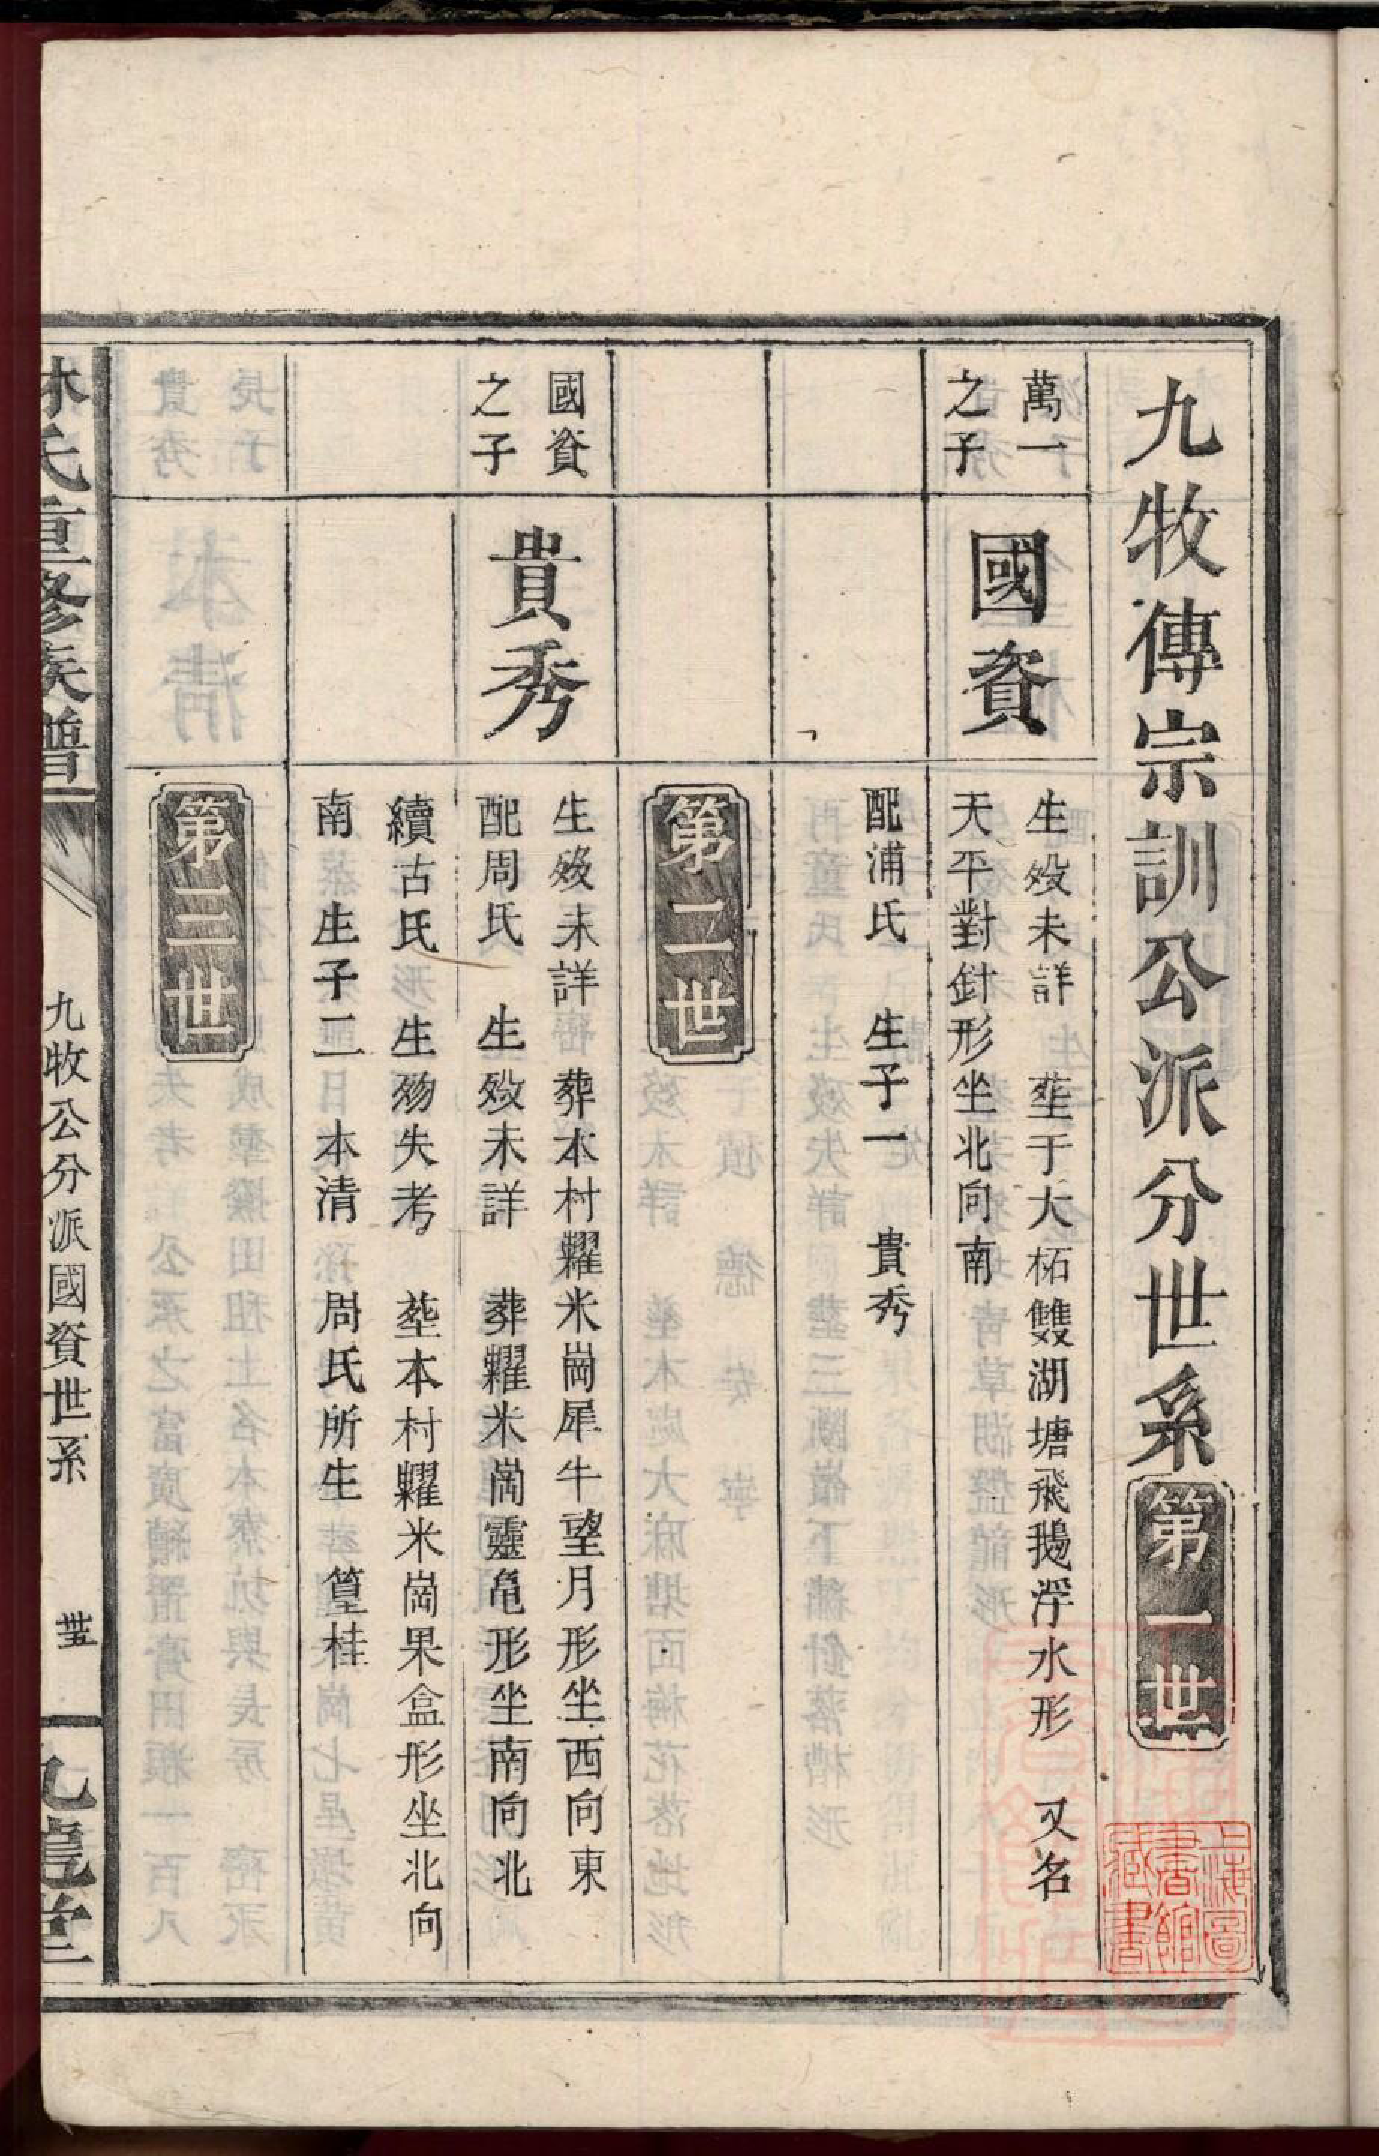 九牧傳宗訓公派分世系 第一世
萬一之子
國資
生殁未詳 塟于大柘雙湖塘飛鵝浮水形 又名
天平對針形坐北向南
配浦氏 生子一 貴秀
第二世
國資之子
貴秀
生殁未詳 葬本村糶米崗犀牛望月形坐西向東
配周氏 生殁未詳 葬糶米崗靈龟形坐南向北
續古氏 生殁失考 塟本村糶米崗果盒形坐北向
南 生子二 本清 周氏所生 篁桂
第三世
林氏重修族譜
九牧公分派國資世系
九龍堂
上海圖書館藏書